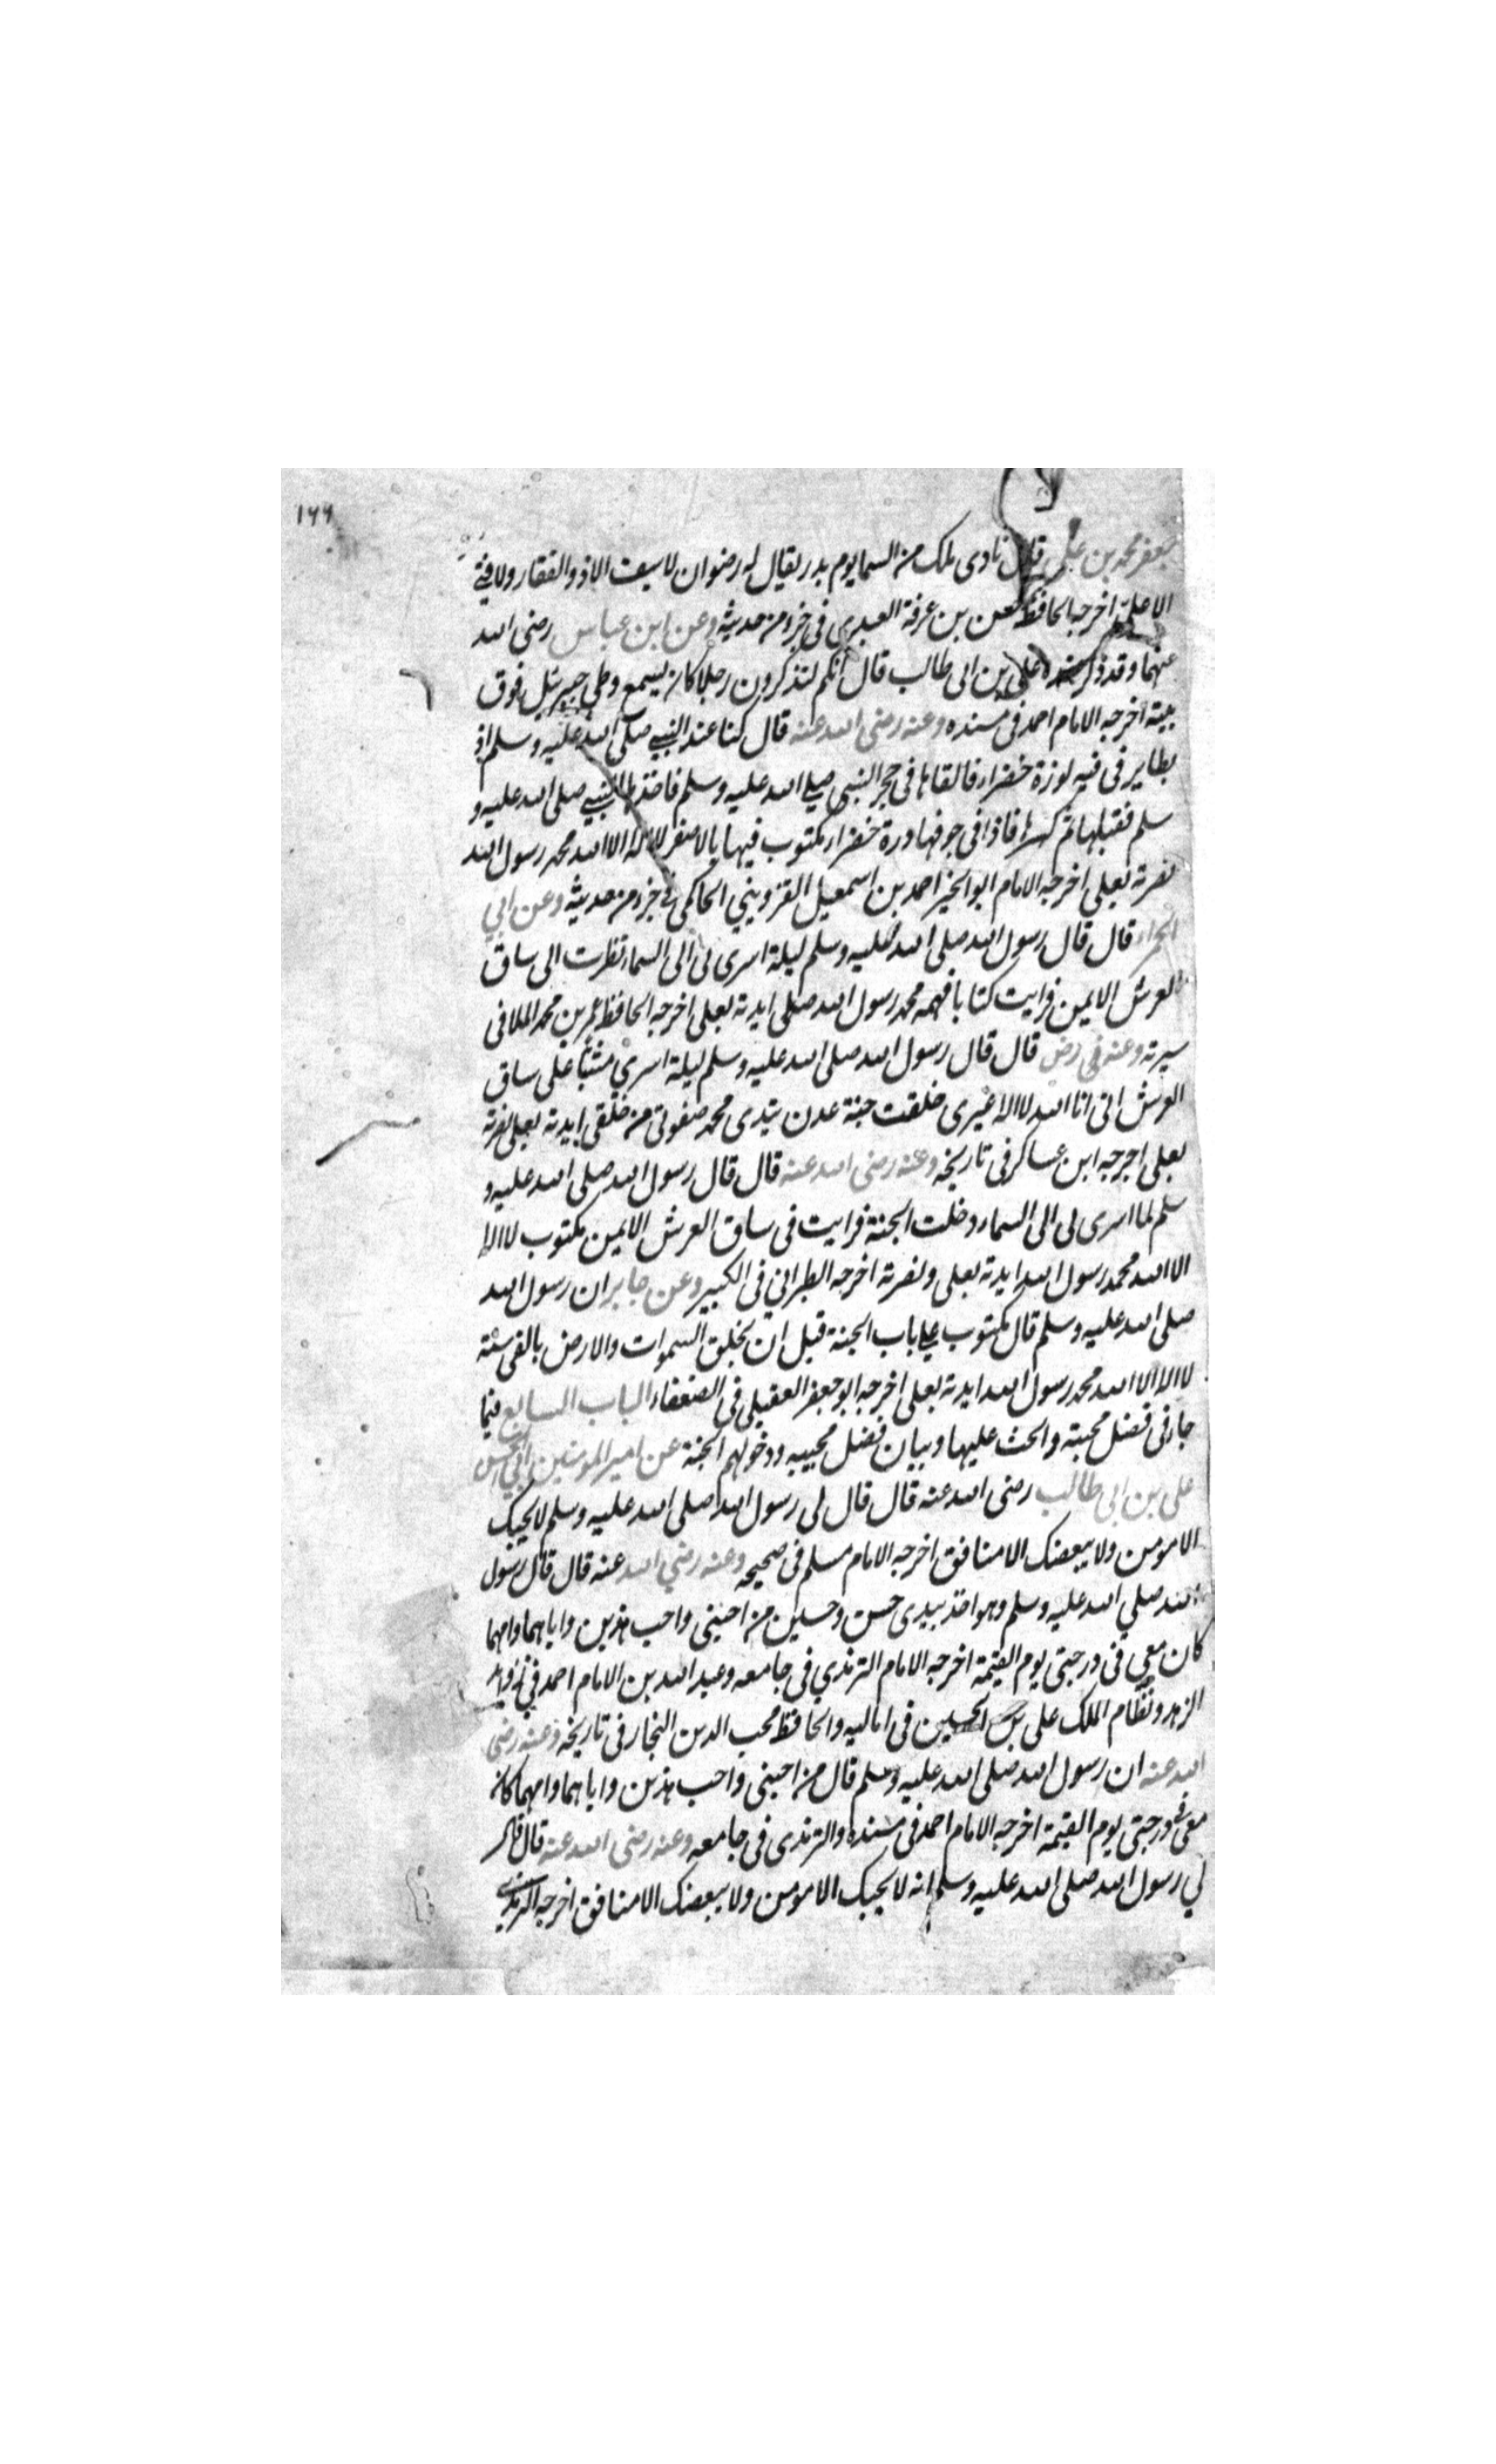 ١٦٦
جعفر محمد بن علي قال نادى ملك من السما يوم بدر يقال له رضوان لا سيف الا ذو الفقار ولا فتى
الا علي اخرجه الحافظ بن عرفة العبدي في جزء من حديثه وعن ابن عباس رضى الله
عنهما وقد ذكر عنده علي بن ابى طالب قال انكم لتذكرون رجلا كان يسمع وطي جبرئيل فوق
بيته اخرجه الامام احمد فى مسنده وعنه رضى الله عنه قال كنا عند النبي صلى الله عليه وسلم اذ
بطاير فى فيه لوزة خضراء فالقاها فى حجر النبى صلى الله عليه وسلم فاخذها النبي صلى الله عليه و
سلم فقبلها ثم كسرها فاذا فى جوفها درة خضراء مكتوب فيها بالاصفر لا اله الا الله محمد رسول الله
نصرته بعلى اخرجه الامام ابو الخير احمد بن اسمعيل القزويني الحاكمى فى جزء من حديثه وعن ابي
الحمراء قال قال رسول الله صلى الله عليه وسلم ليلة اسرى بى الى السماء نظرت الى ساق
العرش الايمن فرايت كتابا فهمه محمد رسول الله صلى ايدته بعلى اخرجه الحافظ عمر بن محمد الملا فى
سيرته وعنه فى رض قال قال رسول الله صلى الله عليه وسلم ليلة اسري مثبتا على ساق
العرش انى انا الله لا اله غيرى خلقت جنة عدن بيدى محمد صفوتى من خلقى ايدته بعلى نصرته
بعلى اخرجه ابن عساكر فى تاريخه وعنه رضى الله عنه قال قال رسول الله صلى الله عليه و
سلم لما اسرى بى الى السماء دخلت الجنة فرايت فى ساق العرش الايمن مكتوب لا اله
الا الله محمد رسول الله ايدته بعلى ونصرته اخرجه الطبراني فى الكبير وعن جابر ان رسول الله
صلى الله عليه وسلم قال مكتوب على باب الجنة قبل ان يخلق السموات والارض بالفى سنة
لا اله الا الله محمد رسول الله ايدته بعلى اخرجه ابو جعفر العقيلي فى الضعفاء الباب السابع فيما
جاء فى فضل محبته والحث عليها وبيان فضل محبيه ودخولهم الجنة عن امير المومنين ابي الحسن
على بن ابى طالب رضى الله عنه قال قال لى رسول الله صلى الله عليه وسلم لا يحبك
الا مومن ولا يبغضك الا منافق اخرجه الامام مسلم فى صحيحه وعنه رضي الله عنه قال قال رسول
الله صلي الله عليه وسلم وهو اخذ بيدى حسن وحسين من احبنى واحب هذين واباهما وامهما
كان معي فى درجتى يوم القيمة اخرجه الامام الترمذي فى جامعه وعبد الله بن الامام احمد في زوايد
الزهد ونظام الملك على بن الحسين فى اماليه والحافظ محب الدين النجار فى تاريخه وعنه رضى
الله عنه ان رسول الله صلى الله عليه وسلم قال من احبنى واحب هذين واباهما وامهما كان
معى فى درجتى يوم القيمة اخرجه الامام احمد فى مسنده والترمذى فى جامعه وعنه رضى الله عنه قال قال
لي رسول الله صلى الله عليه وسلم انه لا يحبك الا مومن ولا يبغضك الا منافق اخرجه الترمذى